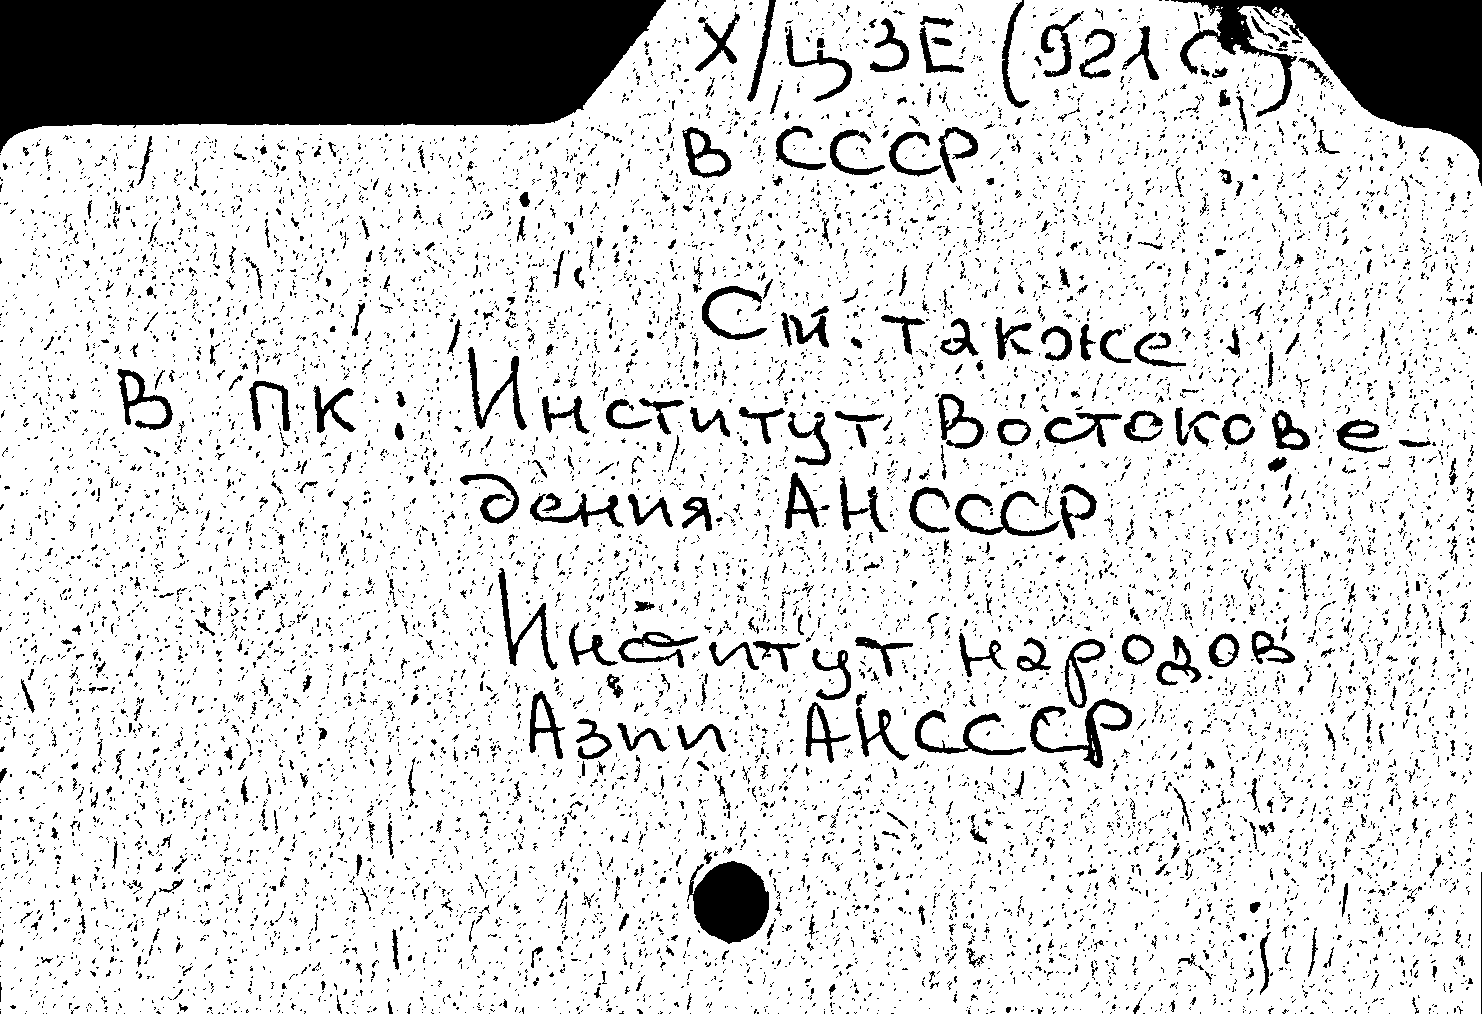 Х/Ц ЗЕ (921 С)
В СССР
См. также
В ПК: Институт Востокове-
дения АН СССР
Институт народов
Азии АН СССР